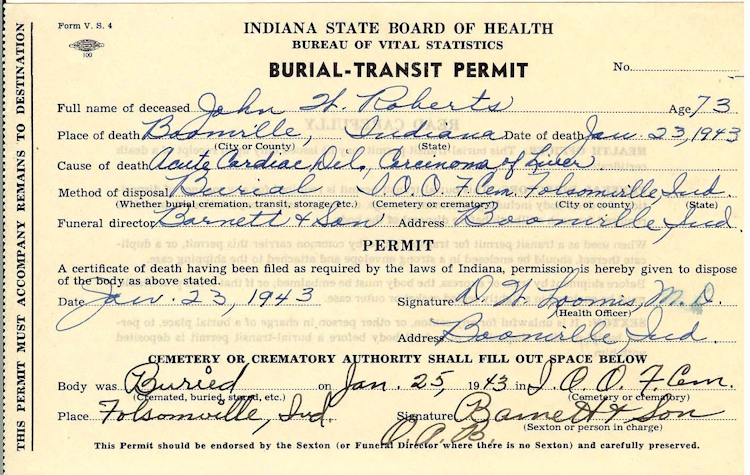 Form V. S. 4
100
INDIANA STATE BOARD OF HEALTH
BUREAU OF VITAL STATISTICS
BURIAL-TRANSIT PERMIT
No.
Full name of deceased John W. Roberts Age 73
Place of death Boonville, Indiana Date of death Jan. 23, 1943
(City or County) (State)
Cause of death Acute Cardiac Dil, Carcinoma of Liver
Method of disposal Burial I.O.O.F. Cem. Folsomville, Ind
(Whether burial cremation, transit, storage, etc.) (Cemetery or crematory) (City or county) (State)
Funeral director Barnett & Son Address Boonville, Ind.
PERMIT
A certificate of death having been filed as required by the laws of Indiana, permission is hereby given to dispose
of the body as above stated.
Date Jan. 23, 1943 Signature D. W. Loomis, M.D.
(Health Officer)
Address Boonville, Ind.
CEMETERY OR CREMATORY AUTHORITY SHALL FILL OUT SPACE BELOW
Body was Buried on Jan. 25, 1943 in I.O.O.F. Cem.
(Cremated, buried, stored, etc.) (Cemetery or crematory)
Place Folsomville, Ind. Signature Barnett & Son
(Sexton or person in charge)
O.A.B.
This Permit should be endorsed by the Sexton (or Funeral Director where there is no Sexton) and carefully preserved.
THIS PERMIT MUST ACCOMPANY REMAINS TO DESTINATION